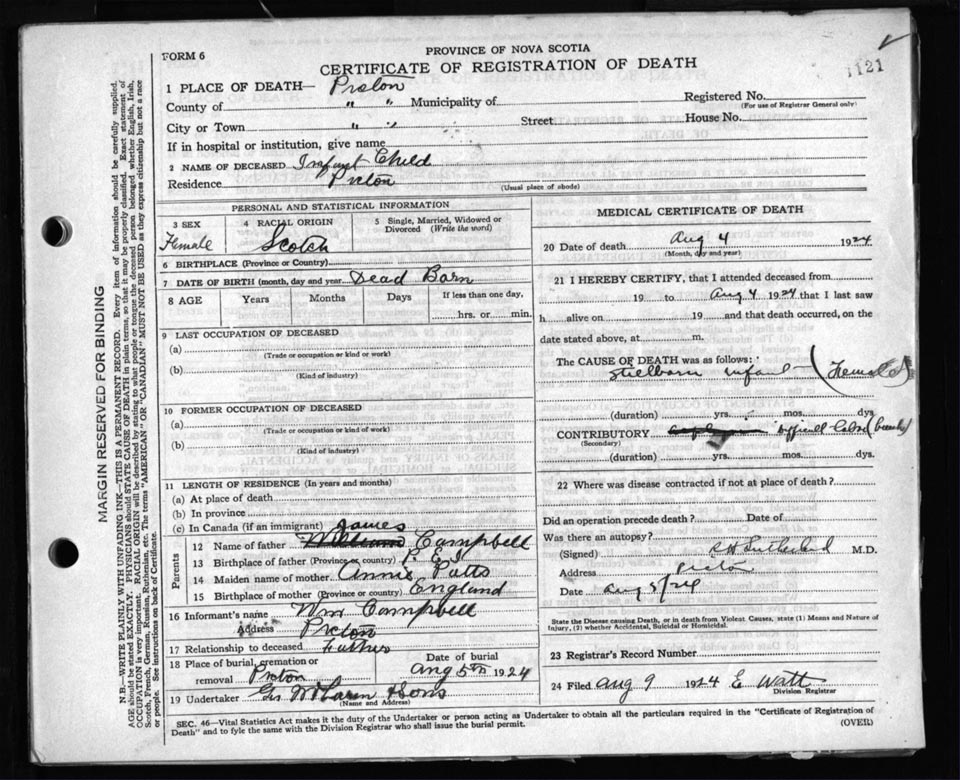 FORM 6
PROVINCE OF NOVA SCOTIA
CERTIFICATE OF REGISTRATION OF DEATH
1121
1 PLACE OF DEATH— Picton
County of " " Municipality of
Registered No.
(For use of Registrar General only)
City or Town " " Street House No.
If in hospital or institution, give name
2 NAME OF DECEASED Infant Child
Residence Picton
(Usual place of abode)
PERSONAL AND STATISTICAL INFORMATION
3 SEX 4 RACIAL ORIGIN 5 Single, Married, Widowed or Divorced (Write the word)
Female Scotch
6 BIRTHPLACE (Province or Country)
7 DATE OF BIRTH (month, day and year) Dead Born
8 AGE Years Months Days If less than one day,
hrs. or min.
9 LAST OCCUPATION OF DECEASED
(a)
(Trade or occupation or kind or work)
(b)
(Kind of industry)
10 FORMER OCCUPATION OF DECEASED
(a)
(Trade or occupation or kind of work)
(b)
(Kind of industry)
11 LENGTH OF RESIDENCE (In years and months)
(a) At place of death
(b) In province
(c) In Canada (if an immigrant)
James
Parents
12 Name of father William Campbell
13 Birthplace of father (Province or country) P. E. I
14 Maiden name of mother Annie Potts
15 Birthplace of mother (Province or country) England
16 Informant's name Wm Campbell
Address Picton
17 Relationship to deceased Father
18 Place of burial, cremation or removal Picton
Date of burial Aug 5th 1924
19 Undertaker Geo McLaren & Sons
(Name and Address)
MEDICAL CERTIFICATE OF DEATH
20 Date of death Aug 4 1924
(Month, day and year)
21 I HEREBY CERTIFY, that I attended deceased from
19 to Aug 4 1924 that I last saw
h alive on 19 and that death occurred, on the
date stated above, at m.
The CAUSE OF DEATH was as follows:
Stillborn infant (Female)
(duration) yrs. mos. dys.
CONTRIBUTORY
(Secondary)
(duration) yrs. mos. dys.
22 Where was disease contracted if not at place of death?
Did an operation precede death? Date of
Was there an autopsy?
(Signed) Sutherland M.D.
Address Picton
Date Aug 5/24
State the Disease causing Death, or in death from Violent Causes, state (1) Means and Nature of
Injury, (2) whether Accidental, Suicidal or Homicidal.
23 Registrar's Record Number
24 Filed Aug 9 1924 E Watt
Division Registrar
SEC. 46—Vital Statistics Act makes it the duty of the Undertaker or person acting as Undertaker to obtain all the particulars required in the "Certificate of Registration of
Death" and to fyle the same with the Division Registrar who shall issue the burial permit.
(OVER)
MARGIN RESERVED FOR BINDING
N.B.—WRITE PLAINLY WITH UNFADING INK—THIS IS A PERMANENT RECORD. Every item of information should be carefully supplied.
AGE should be stated EXACTLY. PHYSICIANS should STATE CAUSE OF DEATH in plain terms, so that it may be properly classified. Exact statement of
OCCUPATION is very important. RACIAL ORIGIN will be described by stating to what people or tongue the deceased person belonged whether English, Irish,
Scotch, French, German, Russian, Ruthenian, etc. The terms "AMERICAN" OR "CANADIAN" MUST NOT BE USED as they express citizenship but not a race
or people. See instructions on back of Certificate.